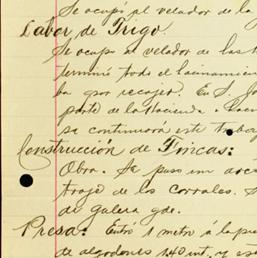 Se ocupó al velador de la
Labor de Trigo.
Se ocupó al velador de las t
terminó todo el hacinamien
ba por recojer. En S. Jo
parte de la Hacienda.
se continuará este trabaj
Construcción de Fincas:
Obra. Se puso un
traje de los corrales. S
de galera gde.
Presa: Entró 1 metro á la pre
de algodones 140 mt, y es